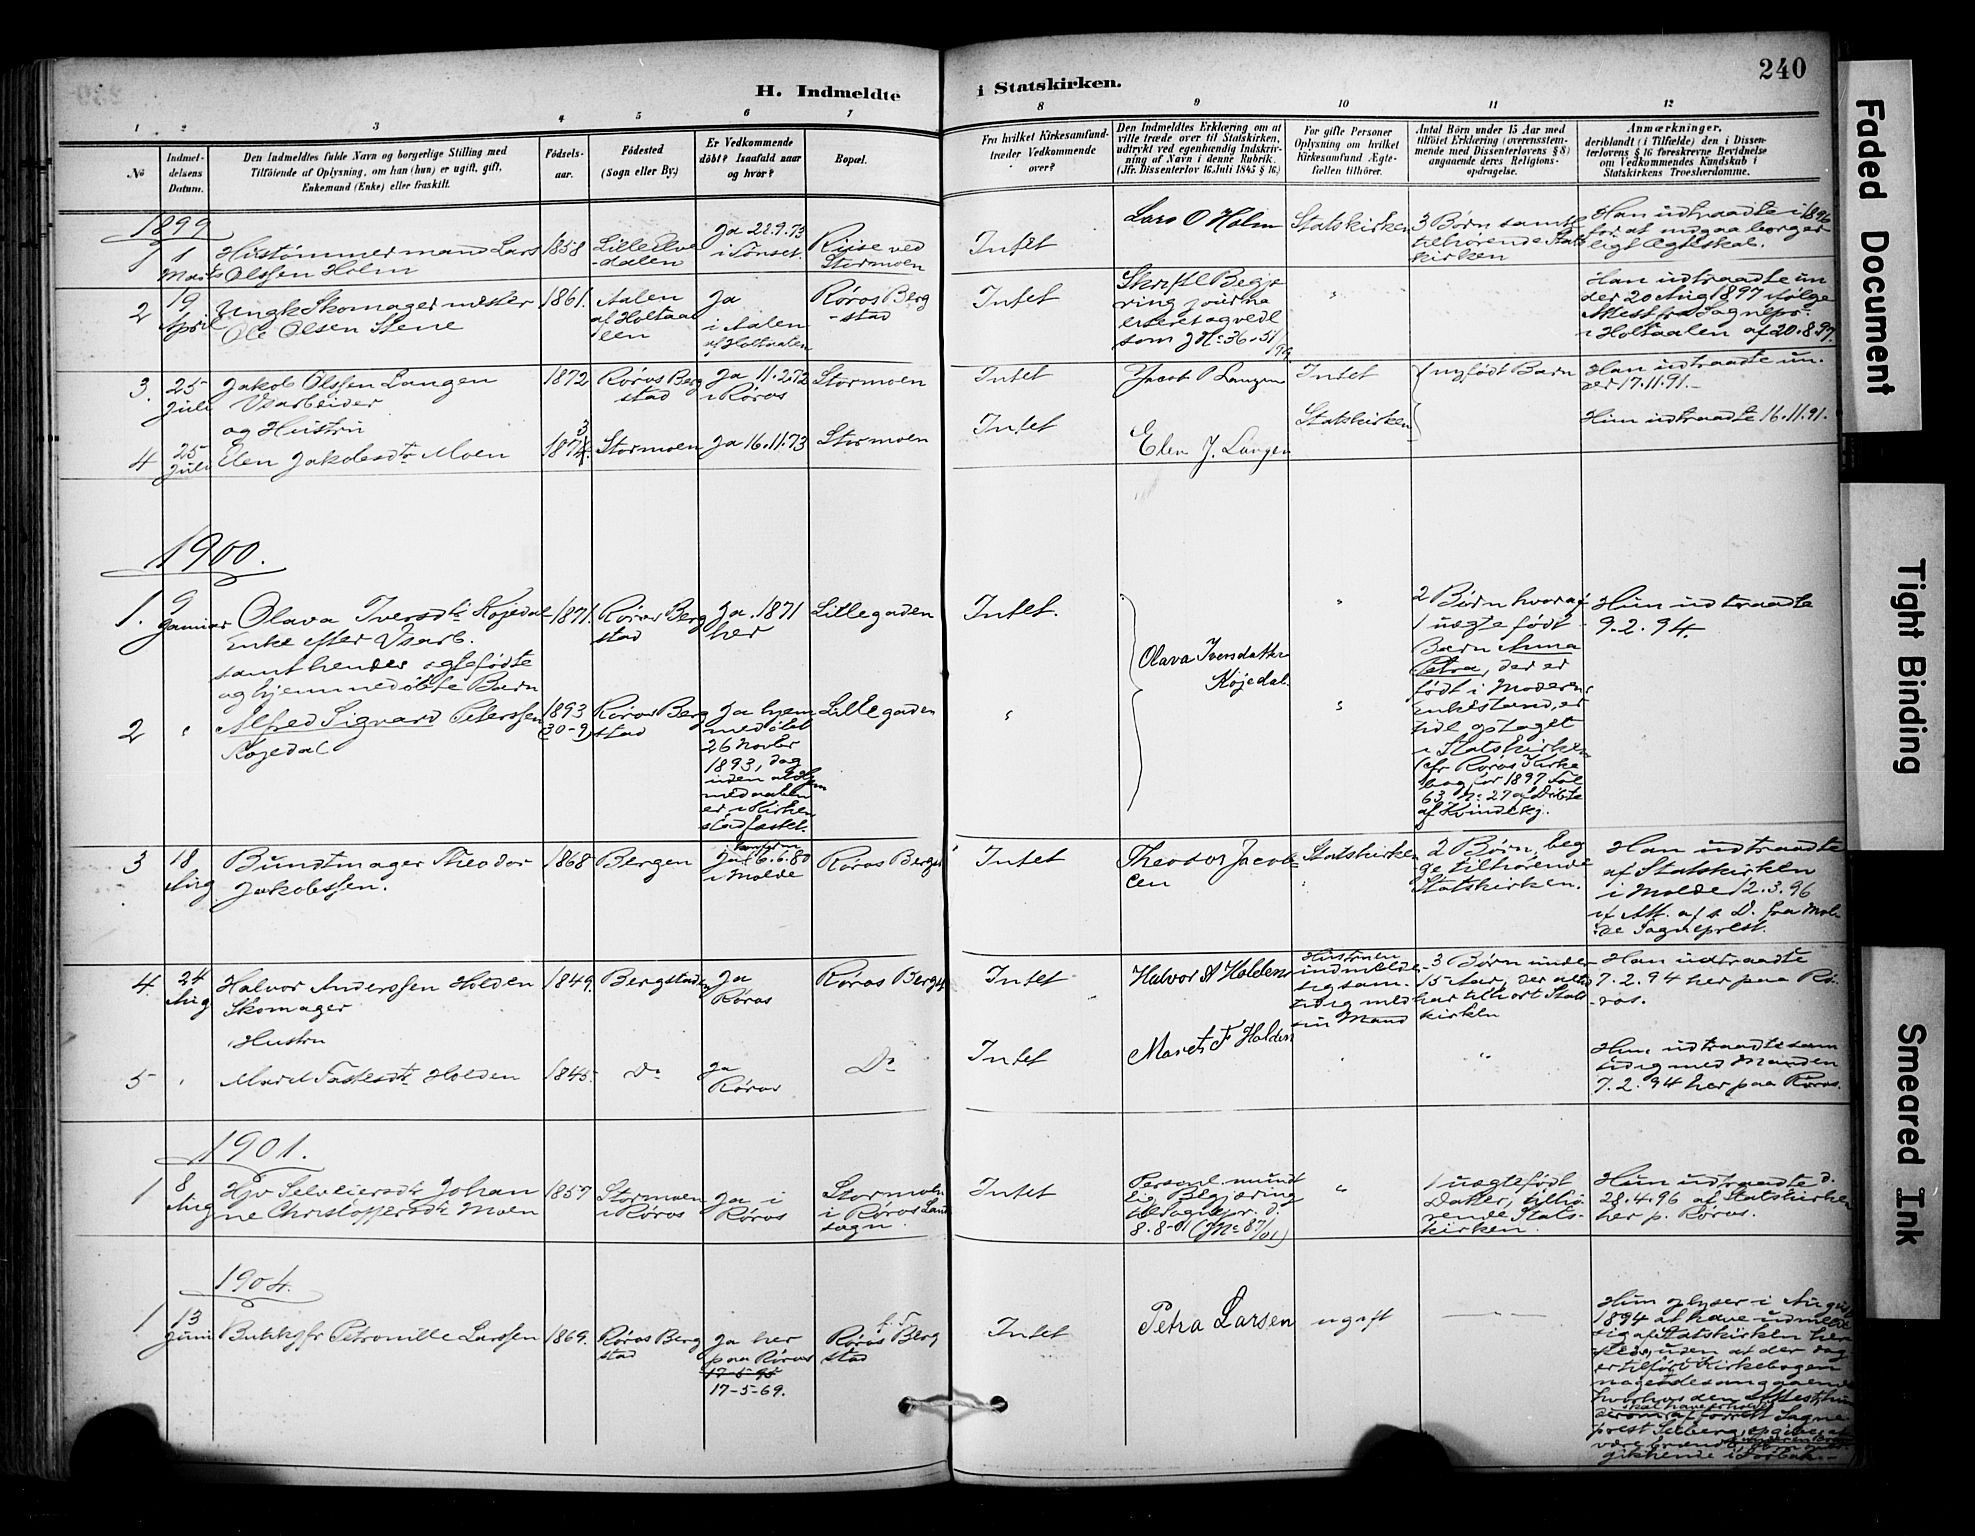 240
H. Indmeldte
i Statskirken.
1 2 3 4 5 6 7 8 9 10 11 12
No
Indmel-
delsens
Datum.
Den Indmeldtes fulde Navn og borgerlige Stilling med
Tilføiende af Oplysning, om han (hun) er ugift, gift,
Enkemand (Enke) eller fraskilt.
Fødsels-
aar.
Fødested
(Sogn eller By.)
Er Vedkommende
døbt? Isaafald naar
og hvor?
Bopæl.
Fra hvilket Kirkesamfund
træder Vedkommende
over?
Den Indmeldtes Erklæring om at
ville træde over til Statskirken,
udtrykt ved egenhændig Indskriv-
ning af Navn i denne Rubrik.
(Jfr. Dissenterlov 16 Juli 1845 § 16.)
For gifte Personer
Oplysning om hvilket
Kirkesamfund Ægte-
fællen tilhører.
Antal Børn under 15 Aar med
tilføiet Erklæring (overensstem-
mende med Dissenterlovens § 8)
angaaende deres Religions-
opdragelse.
Anmærkninger,
deriblandt (i Tilfælde) den i Dissen-
terlovens § 16 foreskrevne Bevidnelse
om Vedkommendes Kundskab i
Statskirkens Troeslærdomme.
1899
1
Marts
Hustømmermand Lars
Olssen Holm
1858
Lille Elve
-dalen
Ja 22.9.73
i Tønset.
Ruse ved
Stormoen
Intet
Lars O Holm
Statskirken
3 Børn samt
tilhørende Stats
kirken
Han udtraadte i 1896
for at indgaa borger
ligt Ægteskab.
2
19
April
Ungk. Skomagermester
Ole Olsen Stene
1861.
Aalen
af Holtaa
len
Ja
i Aalen
af Holtaalen
Røros Berg
-stad
Intet
Skriftl Begjæ
ring journa
liseret og vedl
som J No 36. 51/99
"
Han udtraadte un
der 20 Aug 1897 ifølge
Attest fra Sognepr.
i Holtaalen af 20.8.97.
3.
25
Juli
Jakob Olssen Langen
Vsarbeider
og Hustru
1872
Røros Berg
stad
Ja 11.2.72
i Røros
Stormoen
Intet
Jacob O Langen
Intet
1 nyfødt Barn
Han udtraadte un-
der 17.11.91.-
4
25
Juli
Elen Jakobsdtr Moen
1873
Stormoen
Ja 16.11.73
Stormoen
Intet
Elen J. Langen
Statskirken
Hun udtraadte 16.11.91.
1900.
1.
9
Januar
Olava Iversdtr Kojedal
Enke efter Vsarb.
samt hendes ægtefødte
og hjemmedøbte Barn
1871.
Røros Berg
stad
Ja. 1871
her
Lillegaden
Intet.
Olava Iversdatter
Kojedal.
"
2 Børn hvoraf
1 uægte født
Barn Anna
Petra, der er
født i Moderens
Enkestand, er
tidl optaget
i Statskirken
(cfr Røros Kirke
bog for 1897 fol
63 No 27 af Døbte
af Kvindekj.
Hun udtraadte
9.2.94.
2
"
Alfred Sigvard Peterssen
Kojedal
1893
(30-9)
Røros Berg
stad
Ja hjem
medøbt
26 Novbr
1893, dog
uden at Hjem
medaaben
er i Kirken
stadfæstet.
Lillegaden
"
"
3
18
Aug
Bundtmager Theodor
Jakobssen.
1868
Bergen
Ja 6.6.80
i Molde
Røros Bergst
Intet
Theodor Jacob-
sen
Statskirken
2 Børn, beg
ge tilhørende
Statskirken.
Han udtraadte
af Statskirken
i Molde 12.3.96
if Att. af s. D. fra Mol
de Sogneprest.
4.
24
Aug
Halvor Anderssen Holden
Skomager
Hustru
1849.
Bergstaden
Ja
Røros
Røros Bergst
Intet
Halvor A Holden
Hustruen
indmelder
sig sam-
tidig med
sin Mand
3 Børn under
15 Aar, der altid
har tilhørt Stats
kirken
Han udtraadte
7.2.94 her paa Rø
-ros.
5
"
Marit Fastesdtr Holden
1845.
Do
Ja
Røros
Do
Intet
Maret F Holden
"
"
Hun udtraadte sam
tidig med Manden
7.2.94 her paa Røros.
1901.
1
8
Aug
Hjv Selveiersdtr Johan
ne Christoffersdtr Moen
1857
Stormoen
i Røros
Ja i
Røros
Stormoen
i Røros Land
sogn
Intet
Personl. mundt
lig Begjæring
til Sognepr. d.
8.8-01 (J No 87/01)
"
1 uægtefødt
Datter, tilhø
rende Stats-
kirken.
Hun udtraadte d.
28.4.96 af Statskirken
her p. Røros.
1904.
1
13
Juni
Butikjfr Petronille Larssen
1869.
Røros Berg
stad
Ja her
paa Røros
17-5-95
17-5-69.
f. T.
Røros Berg
stad
Intet
Petra Larsen
ugift
Hun oplyser i August
1894 at have udmeldt
sig af Statskirken her
Faded Document
Tight Binding
Smeared Ink